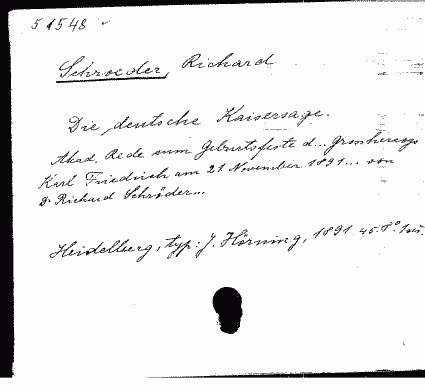 51548
Schroeder, Richard
Die deutsche Kaisersage.
Akad. Rede zum Geburtsfeste d... Grossherzogs
Karl Friedrich am 21. November 1891... von
Dr Richard Schröder...
Heidelberg, typ: J. Hörning, 1891. 45. 8°.